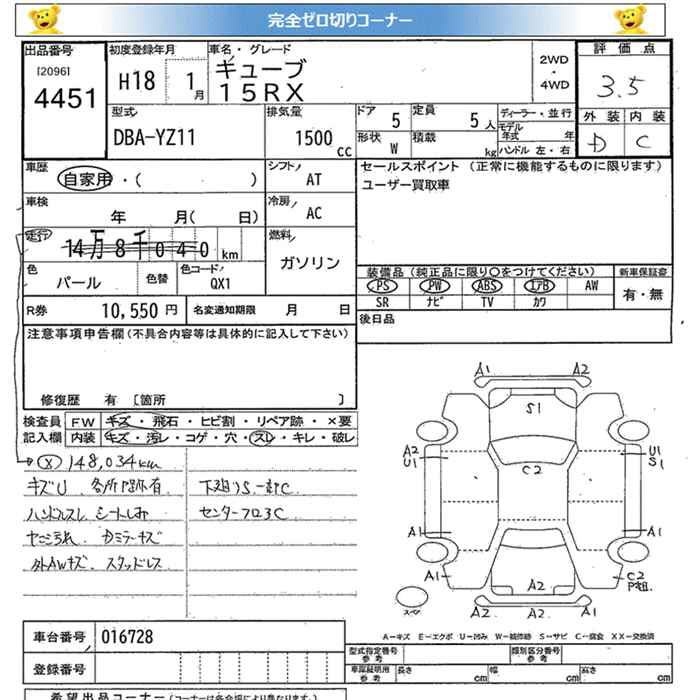 完全ゼロ切りコーナー
出品番号
[2096]
4451
初度登録年月
H18 1月
車名・グレード
キューブ
15RX
2WD
・
4WD
評価点
3.5
外装 内装
D C
型式
DBA-YZ11
排気量
1500 cc
ドア 5
定員 5人
形状 W
積載 kg
ディーラー・並行
モデル年式 年
ハンドル 左・右
車歴
自家用・( )
シフト
AT
セールスポイント (正常に機能するものに限ります)
ユーザー買取車
車検
年 月( 日)
冷房
AC
走行
14万8千040km
燃料
ガソリン
色
パール
色替
色コード
QX1
装備品 (純正品に限り○をつけてください)
新車保証書
PS PW ABS エアB AW
有・無
SR ナビ TV カワ
R券 10,550 円
名変通知期限 月 日
後日品
注意事項申告欄 (不具合内容等は具体的に記入して下さい)
修復歴 有 [箇所 ]
検査員
記入欄
FW キズ・飛石・ヒビ割・リペア跡・×要
内装 キズ・汚レ・コゲ・穴・スレ・キレ・破レ
ⓧ 148,034km
キズU
下廻りS一部C
ハンドルスレ シートしみ
センターフロ3C
Dミラーキズ
外AWキズ スタッドレス
A1 A2
S1
C2
A2
U1
U1
S1
A1
A1
A1
A2
C2
スペア
A2 A2 A1
A-キズ E-エクボ U-凹み W-補修跡 S-サビ C-腐食 XX-交換済
車台番号 016728
登録番号
型式指定番号
参考
類別区分番号
参考
車庫証明用
参考
長さ cm 幅 cm 高さ cm
希望出品コーナー (コーナーは各会場により異なります。)